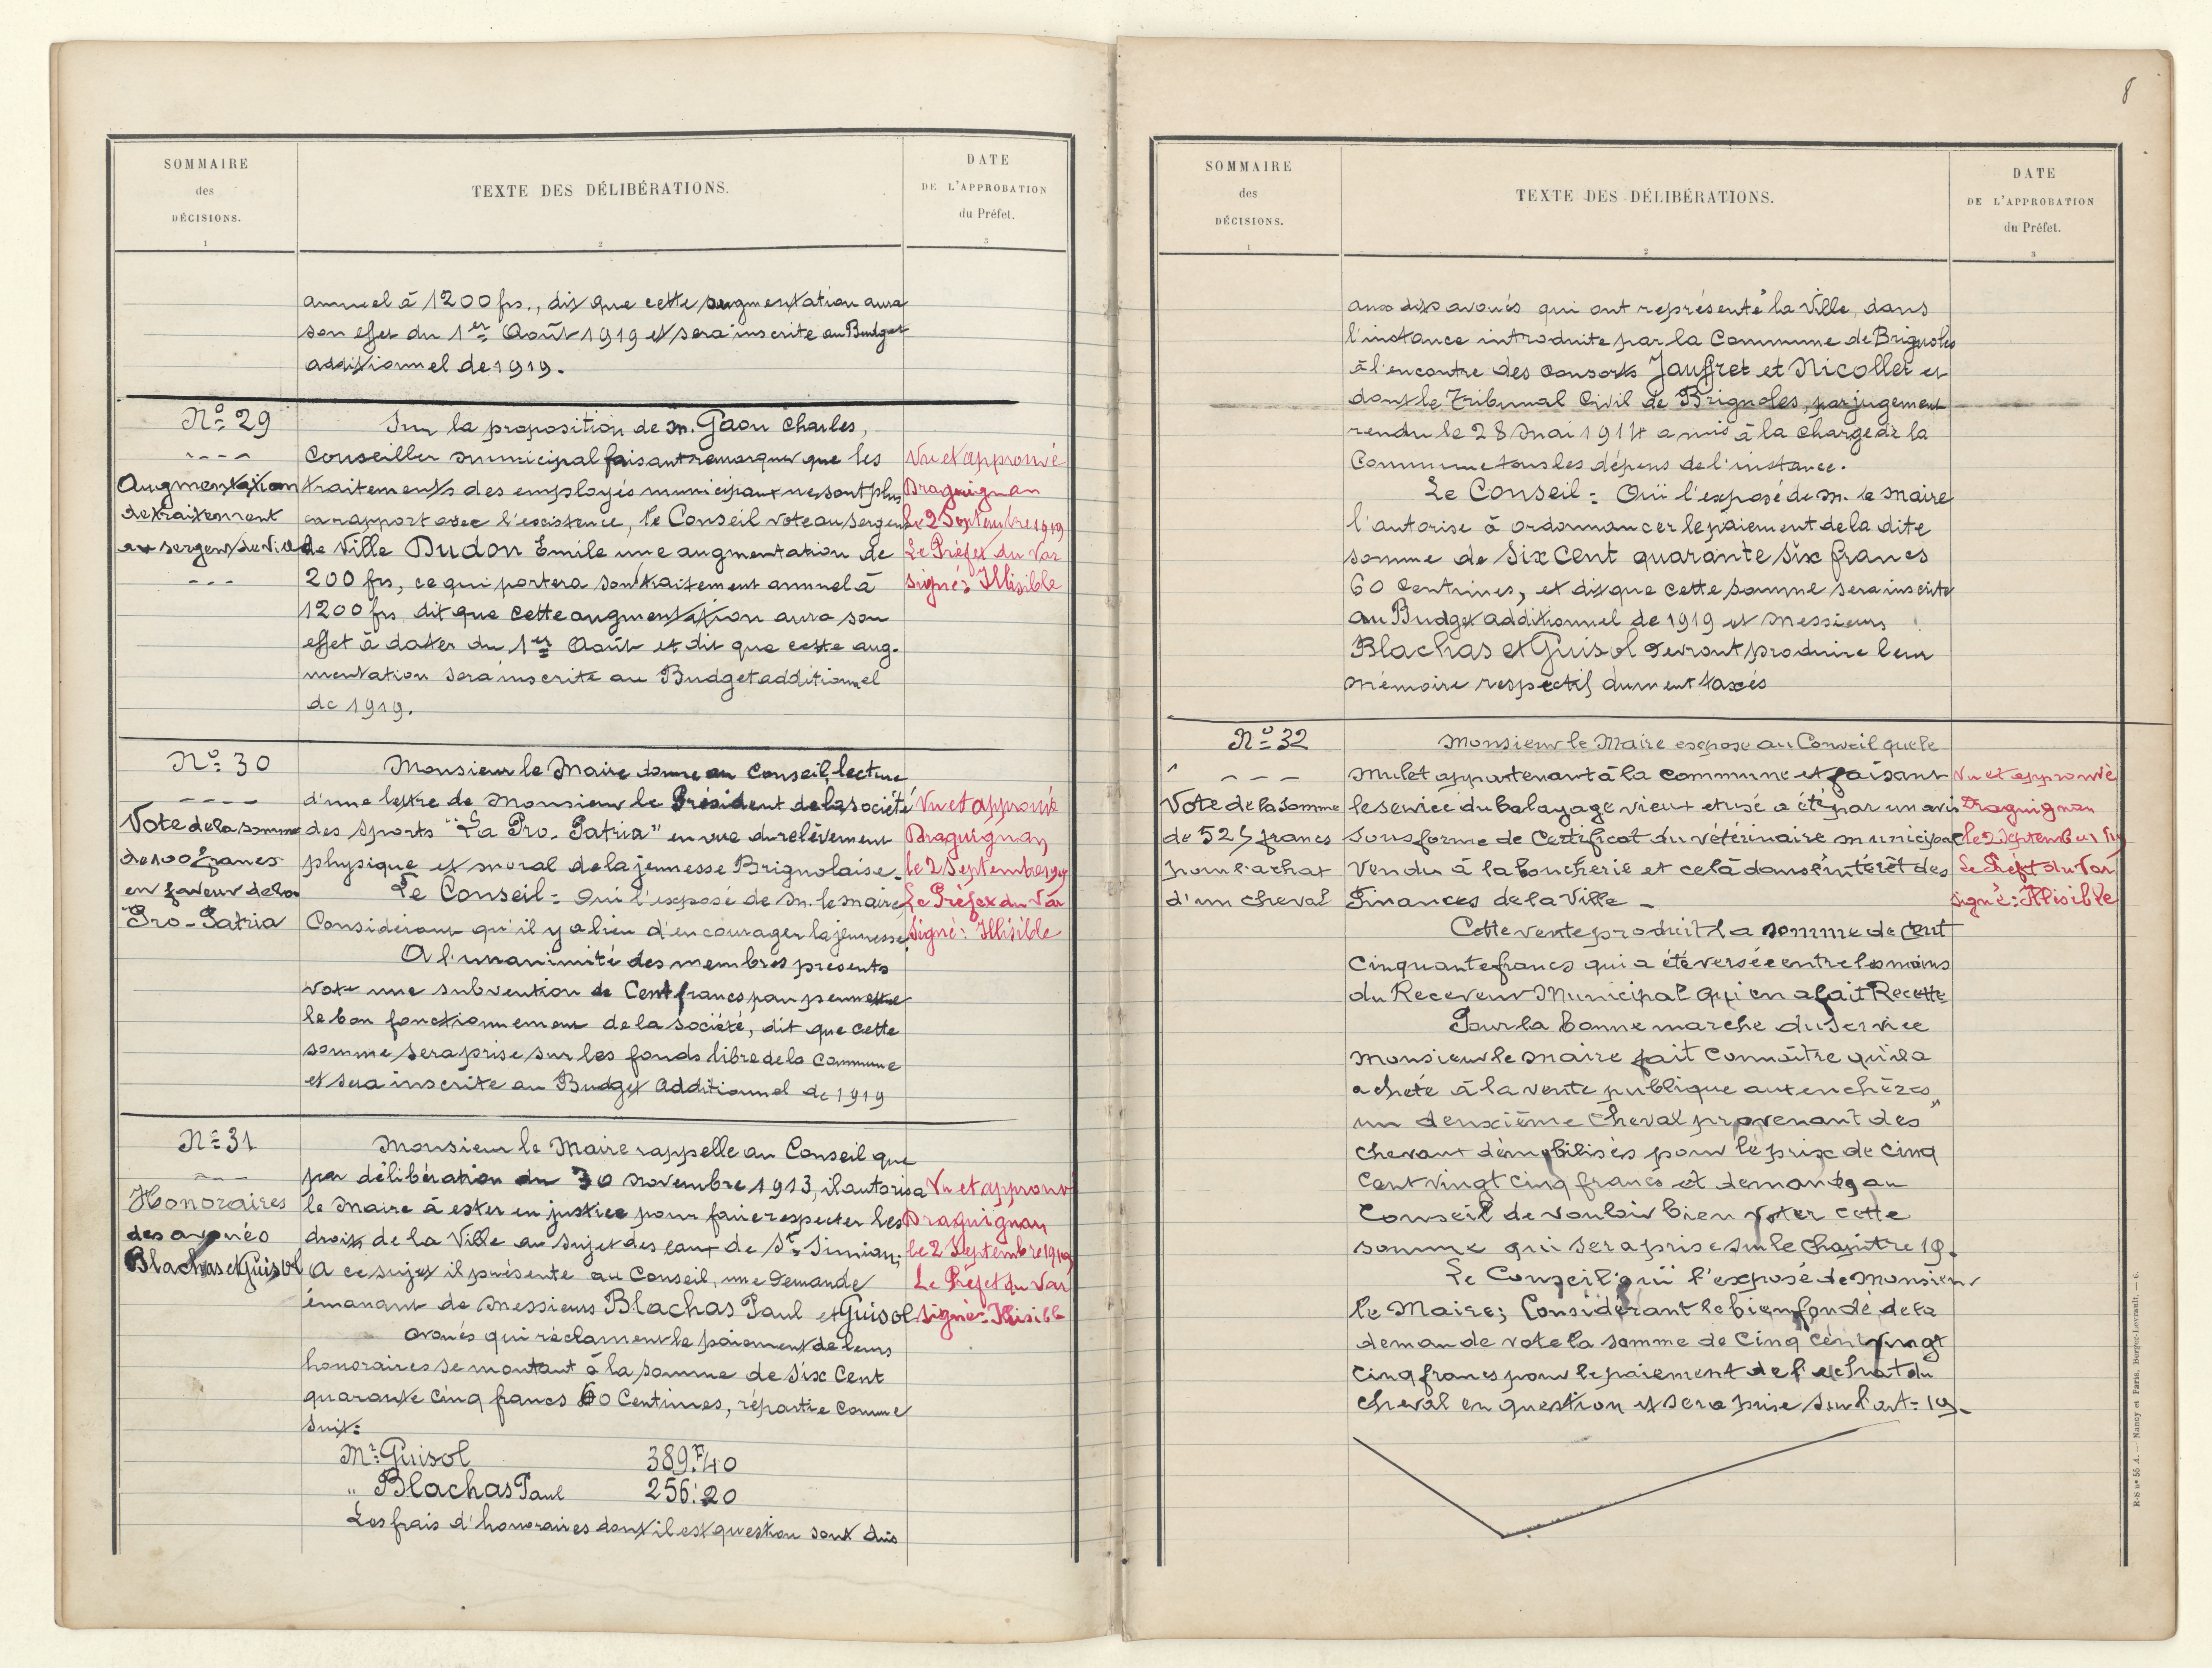 8
SOMMAIRE
des
DÉCISIONS.
1
TEXTE DES DÉLIBÉRATIONS.
2
DATE
DE L'APPROBATION
du Préfet.
3
annuel à 1200 frs., dit que cette augmentation aura
son effet du 1er Août 1919 et sera inscrite au Budget
additionnel de 1919.
No 29
----
Augmentation
de traitement
au sergent de Ville
---
Sur la proposition de M. Gaou Charles,
Conseiller municipal faisant remarquer que les
traitements des employés municipaux ne sont plus
en rapport avec l'existence, le Conseil vote au sergent
de Ville Dudon Emile une augmentation de
200 frs, ce qui portera son traitement annuel à
1200 frs dit que cette augmentation aura son
effet à dater du 1er Août et dit que cette aug-
mentation sera inscrite au Budget additionnel
de 1919.
Vu et approuvé
Draguignan
le 2 Septembre 1919
Le Préfet du Var
signé: Illisible
No 30
----
Vote de la somme
de 100 francs
en faveur de la
"Pro-Patria
Monsieur le Maire donne au Conseil, lecture
d'une lettre de Monsieur le Président de la société
des Sports "La Pro-Patria" en vue du relèvement
physique et moral de la jeunesse Brignolaise.
Le Conseil = Ouï l'exposé de M. le Maire
Considérant qu'il y a lieu d'encourager la jeunesse
A l'unanimité des membres présents
vote une subvention de Cent francs pour permettre
le bon fonctionnement de la société, dit que cette
somme sera prise sur les fonds libre de la Commune
et sera inscrite au Budget Additionnel de 1919
Vu et approuvé
Draguignan
le 2 Septembre 1919
Le Préfet du Var
Signé: Illisible
No 31
---
Honoraires
des avoués
Blachas et Guisol
Monsieur le Maire rappelle au Conseil que
par délibération du 30 Novembre 1913, il autorisa
le Maire à ester en justice pour faire respecter les
droits de la Ville au sujet des eaux de St Simian;
A ce sujet il présente au Conseil, une Demande
émanant de Messieurs Blachas Paul et Guisol
avoués qui réclament le paiement de leurs
honoraires se montant à la somme de Six Cent
quarante cinq francs 60 Centimes, répartie comme
suit:
Mr Guisol 389.F40
" Blachas Paul 256.20
Les frais d'honoraires dont il est question sont dûs
Vu et approuvé
Draguignan
le 2 Septembre 1919
Le Préfet du Var
signé: Illisible
SOMMAIRE
des
DÉCISIONS.
1
TEXTE DES DÉLIBÉRATIONS.
2
DATE
DE L'APPROBATION
du Préfet.
3
aux dits avoués qui ont représenté la Ville, dans
l'instance introduite par la Commune de Brignoles
à l'encontre des consorts Jauffret et Nicollet et
dont le Tribunal Civil de Brignoles, par jugement
rendu le 28 Mai 1914 a mis à la charge de la
Commune tous les dépens de l'instance.
Le Conseil = Ouï l'exposé de M. le Maire
l'autorise à ordonnancer le paiement de la dite
somme de Six Cent quarante Six francs
60 centimes, et dit que cette somme sera inscrite
au Budget additionnel de 1919 et Messieurs
Blachas et Guisol devront produire leur
mémoire respectif dument taxés
No 32
---
Vote de la somme
de 525 francs
pour l'achat
d'un cheval
Monsieur le Maire expose au Conseil que le
Mulet appartenant à la commune et faisant
le service du balayage vieux et usé a été par un avis
sous forme de Certificat du vétérinaire municipal
Vendu à la boucherie et celà dans l'intérêt des
Finances de la Ville -
Cette vente produit la somme de Cent
Cinquante francs qui a été versée entre les mains
du Receveur Municipal qui en a fait Recette
Pour la bonne marche du Service
Monsieur le Maire fait connaître qu'il a
acheté à la vente publique aux enchères,
un deuxième cheval provenant des
chevaux démobilisés pour le prix de cinq
Cent vingt cinq francs et demande au
Conseil de vouloir bien voter cette
somme qui sera prise sur le Chapitre 19.
Le Conseil ouï l'exposé de Monsieur
le Maire; Considérant le bien fondé de la
demande vote la somme de Cinq cent vingt
cinq francs pour le paiement de l'achat du
cheval en question et sera prise sur l'art = 19.
Vu et approuvé
Draguignan
le 2 Septembre 1919
Le Préfet du Var
signé: Illisible
R-S no 55 A. — Nancy et Paris, Berger-Levrault. — 6.